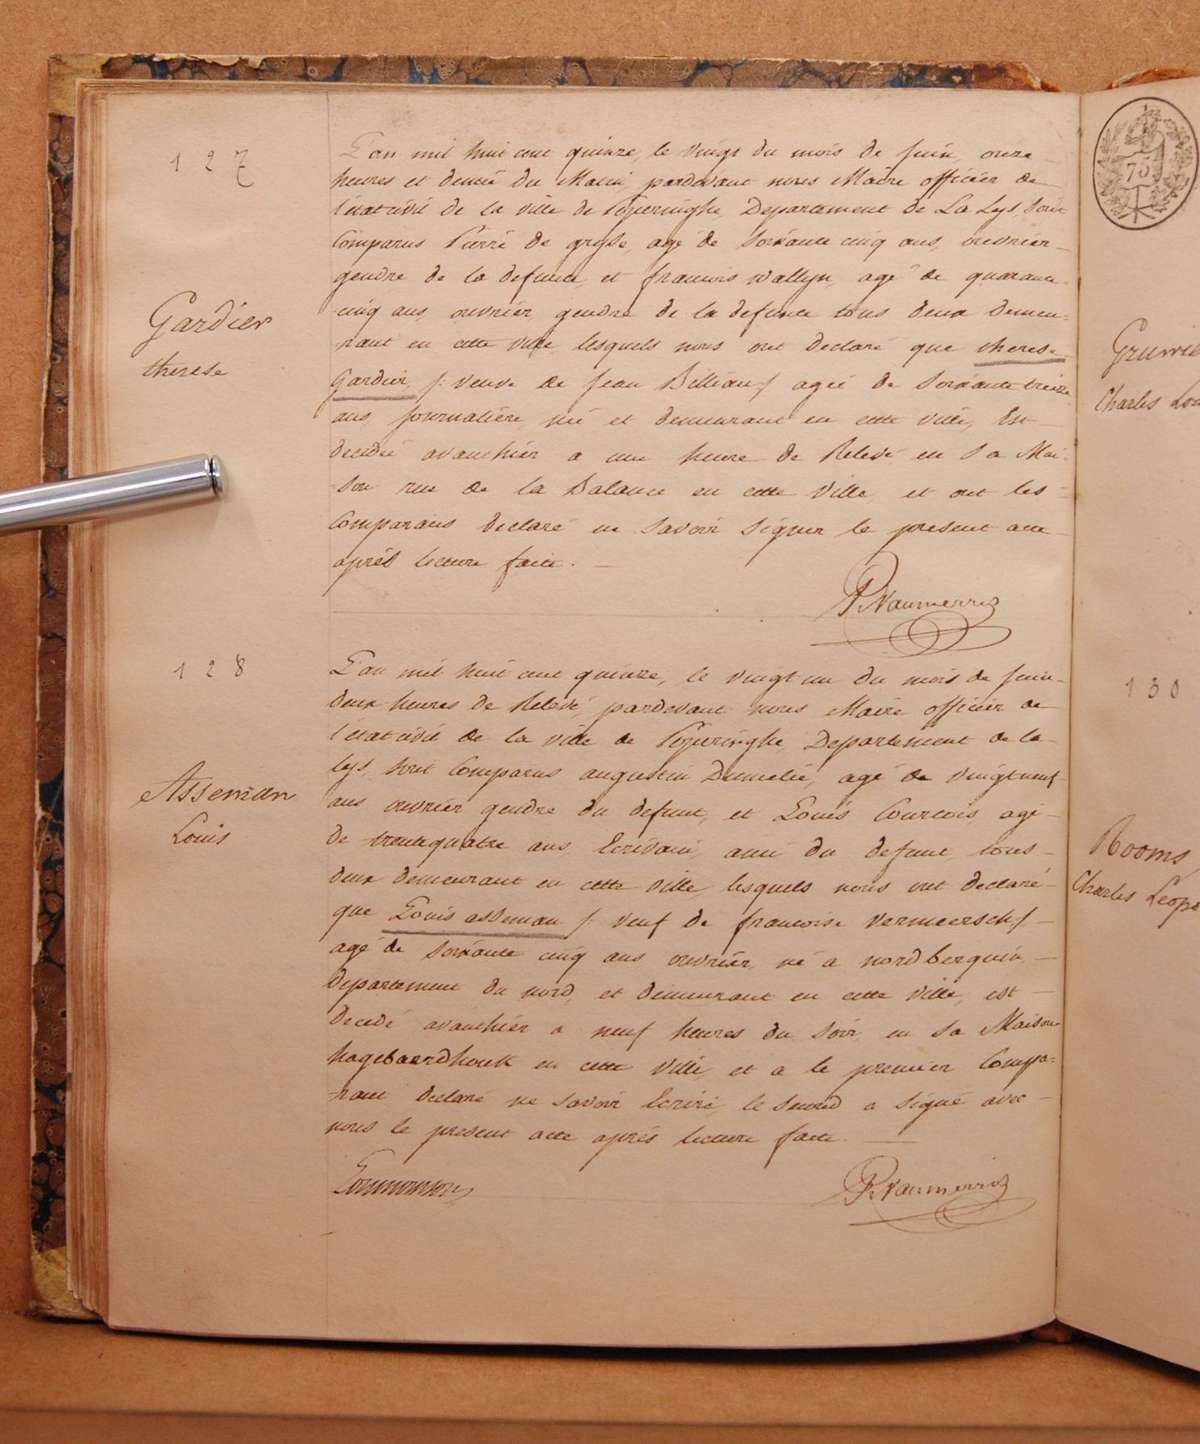 127
Gardier
therese
L'an mil huit cent quinze, le vingt du mois de Juin, onze
heures et demie du Matin, pardevant nous Maire officier de
l'etat civil de la ville de Poperinghe, Departement de La Lys, sont
Comparus Pierre de gryse, agé de soixante cinq ans, ouvrier
gendre de la defunte, et francois wallyn, agé de quarante
cinq ans, ouvrier gendre de la defunte tous deux demeu-
rant en cette ville lesquels nous ont declaré que therese
Gardier, /: veuve de Jean Billiau :/ agée de soixante treize
ans, Journaliére, né et demeurant en cette ville, Est
decedée avanthier a une heure de Relevé, en sa Mai-
son rue de la Balance en cette Ville, et ont les
Comparans declaré ne savoir signer le present acte
aprés lecture faite.
128
Asseman
Louis
L'an mil huit cent quinze, le vingt un du mois de Juin
deux heures de Relevé, pardevant nous Maire officier de
l'etat civil de la ville de Poperinghe, Departement de la
Lys, sont Comparus augustin, agé de vingt neuf
ans ouvrier gendre du defunt, et Louis Courtois agé
de trente quatre ans Ecrivain, ami du defunt tous
deux demeurant en cette ville, lesquels nous ont declaré
que Louis asseman /: veuf de francoise vermeersch :/
agé de soixante cinq ans ouvrier, né a nordberquin,
Departement du nord, et demeurant en cette ville, est
decedé avanthier a neuf heures du soir, en sa Maison
hagebaerdhouck en cette ville, et a le premier Compa-
rant declaré ne savoir Ecrire, le second a signé avec
nous le present acte aprés lecture faite.
75
Charles
130
Rooms
Charles Leopo